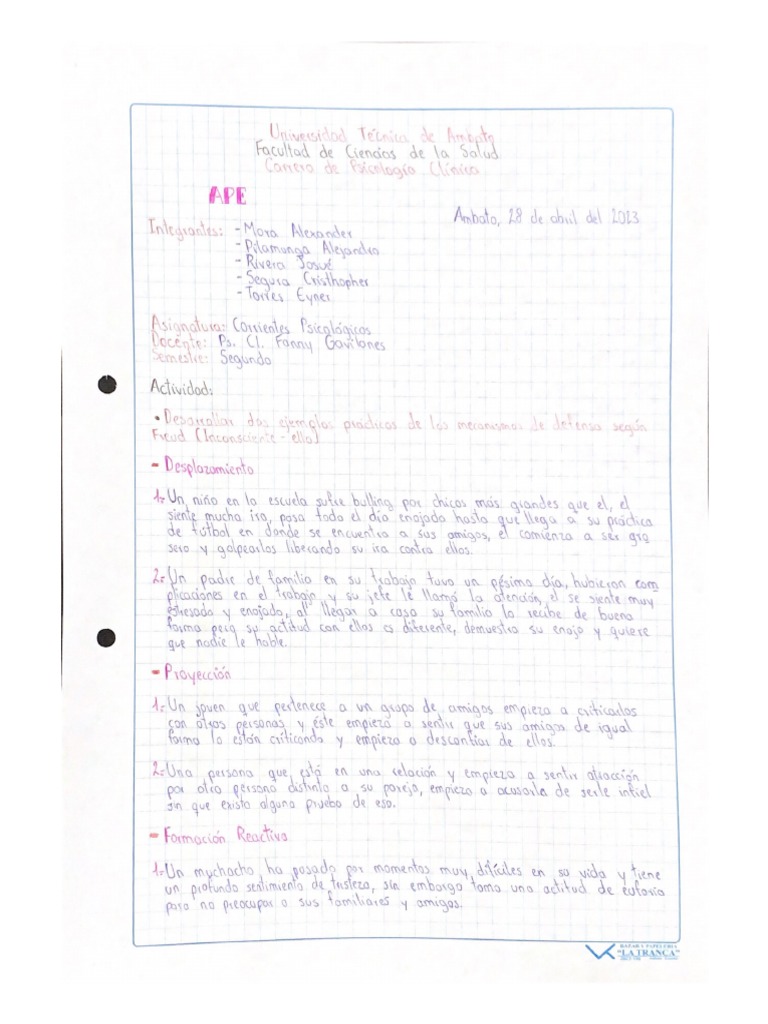 Universidad Técnica de Ambato
Facultad de Ciencias de la Salud
Carrera de Psicología Clínica
APE
Ambato, 28 de abril del 2023
Integrantes: - Mora Alexander
- Pilamunga Alejandro
- Rivera Josué
- Segura Cristhopher
- Torres Eyner
Asignatura: Corrientes Psicológicas
Docente: Ps. Cl. Fanny Gavilanes
Semestre: Segundo
Actividad:
• Desarrollar dos ejemplos prácticos de los mecanismos de defensa según
Freud (Inconsciente - ello)
- Desplazamiento
1= Un niño en la escuela sufre bulling por chicos más grandes que el, el
siente mucha ira, pasa todo el día enojado hasta que llega a su práctica
de fútbol en donde se encuentra a sus amigos, el comienza a ser gro
sero y golpearlos liberando su ira contra ellos.
2= Un padre de familia en su trabajo tuvo un pésimo día, hubieron com
plicaciones en el trabajo y su jefe le llamó la atención, el se siente muy
estresado y enojado, al llegar a casa su familia lo recibe de buena
forma pero su actitud con ellos es diferente, demuestra su enojo y quiere
que nadie le hable.
- Proyección
1= Un joven que pertenece a un grupo de amigos empieza a criticarlos
con otras personas y éste empieza a sentir que sus amigos de igual
forma lo están criticando y empieza a desconfiar de ellos.
2= Una persona que está en una relación y empieza a sentir atracción
por otra persona distinta a su pareja, empieza a acusarla de serle infiel
sin que exista alguna prueba de eso.
- Formación Reactiva
1= Un muchacho ha pasado por momentos muy difíciles en su vida y tiene
un profundo sentimiento de tristeza, sin embargo toma una actitud de euforia
para no preocupar a sus familiares y amigos.
BAZAR Y PAPELERIA
"LA TRANCA"